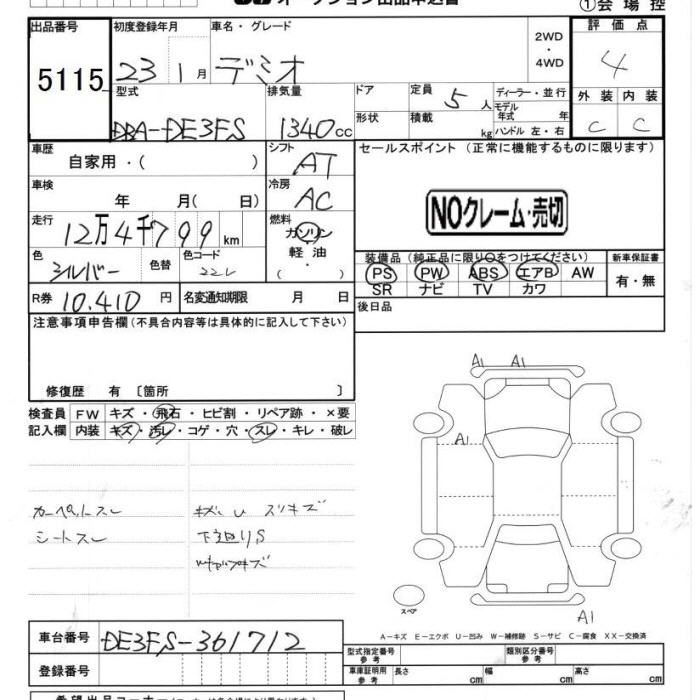 オークション出品申込書
①会場控
出品番号
5115
初度登録年月
23 1月
車名・グレード
デミオ
2WD
・
4WD
評価点
4
型式
DBA-DE3FS
排気量
1340cc
ドア
形状
定員 5人
積載 kg
ディーラー・並行
モデル年式 年
ハンドル 左・右
外装 内装
C C
車歴
自家用・( )
シフト
AT
セールスポイント (正常に機能するものに限ります)
NOクレーム・売切
車検
年 月( 日)
冷房
AC
走行
12万4千799km
燃料
ガソリン
軽油
( ・ )
色
シルバー
色替
色コード
22L
装備品 (純正品に限り○をつけてください)
PS PW ABS エアB AW
SR ナビ TV カワ
新車保証書
有・無
R券 10.410円
名変通知期限 月 日
後日品
注意事項申告欄 (不具合内容等は具体的に記入して下さい)
修復歴 有 〔箇所 〕
検査員
記入欄
FW キズ・飛石・ヒビ割・リペア跡・×要
内装 キズ・汚レ・コゲ・穴・スレ・キレ・破レ
カーペットスレ
シートスレ
キズU スリキズ
下廻りS
A1 A1
A1
スペア
A1
A-キズ E-エクボ U-凹み W-補修跡 S-サビ C-腐食 XX-交換済
車台番号 DE3FS-361712
登録番号
型式指定番号
参考
類別区分番号
参考
車庫証明用
参考
長さ cm 幅 cm 高さ cm